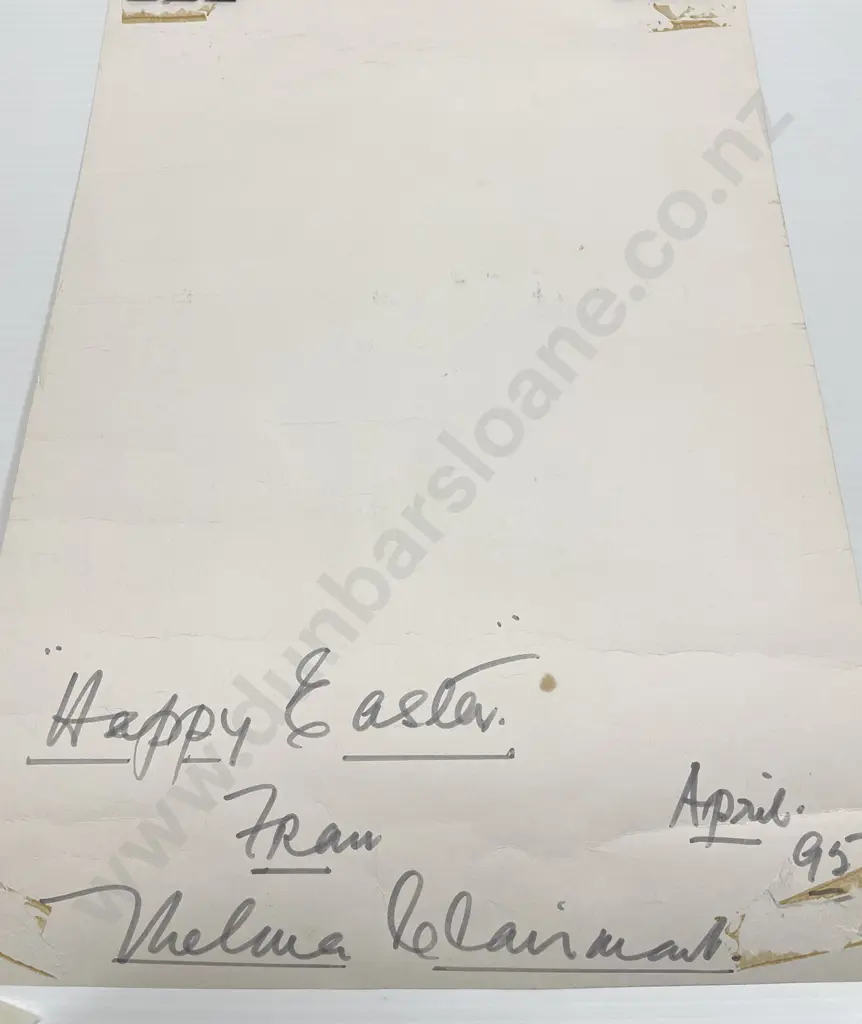 "Happy Easter."
Fran
April.
95
Thelma Clairmont.
www.dunbarsloane.co.nz